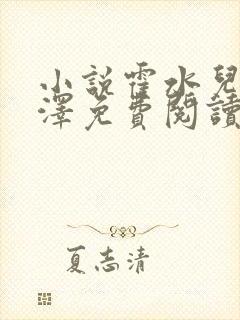 小說霍水兒
澤免費閱讀
夏志清